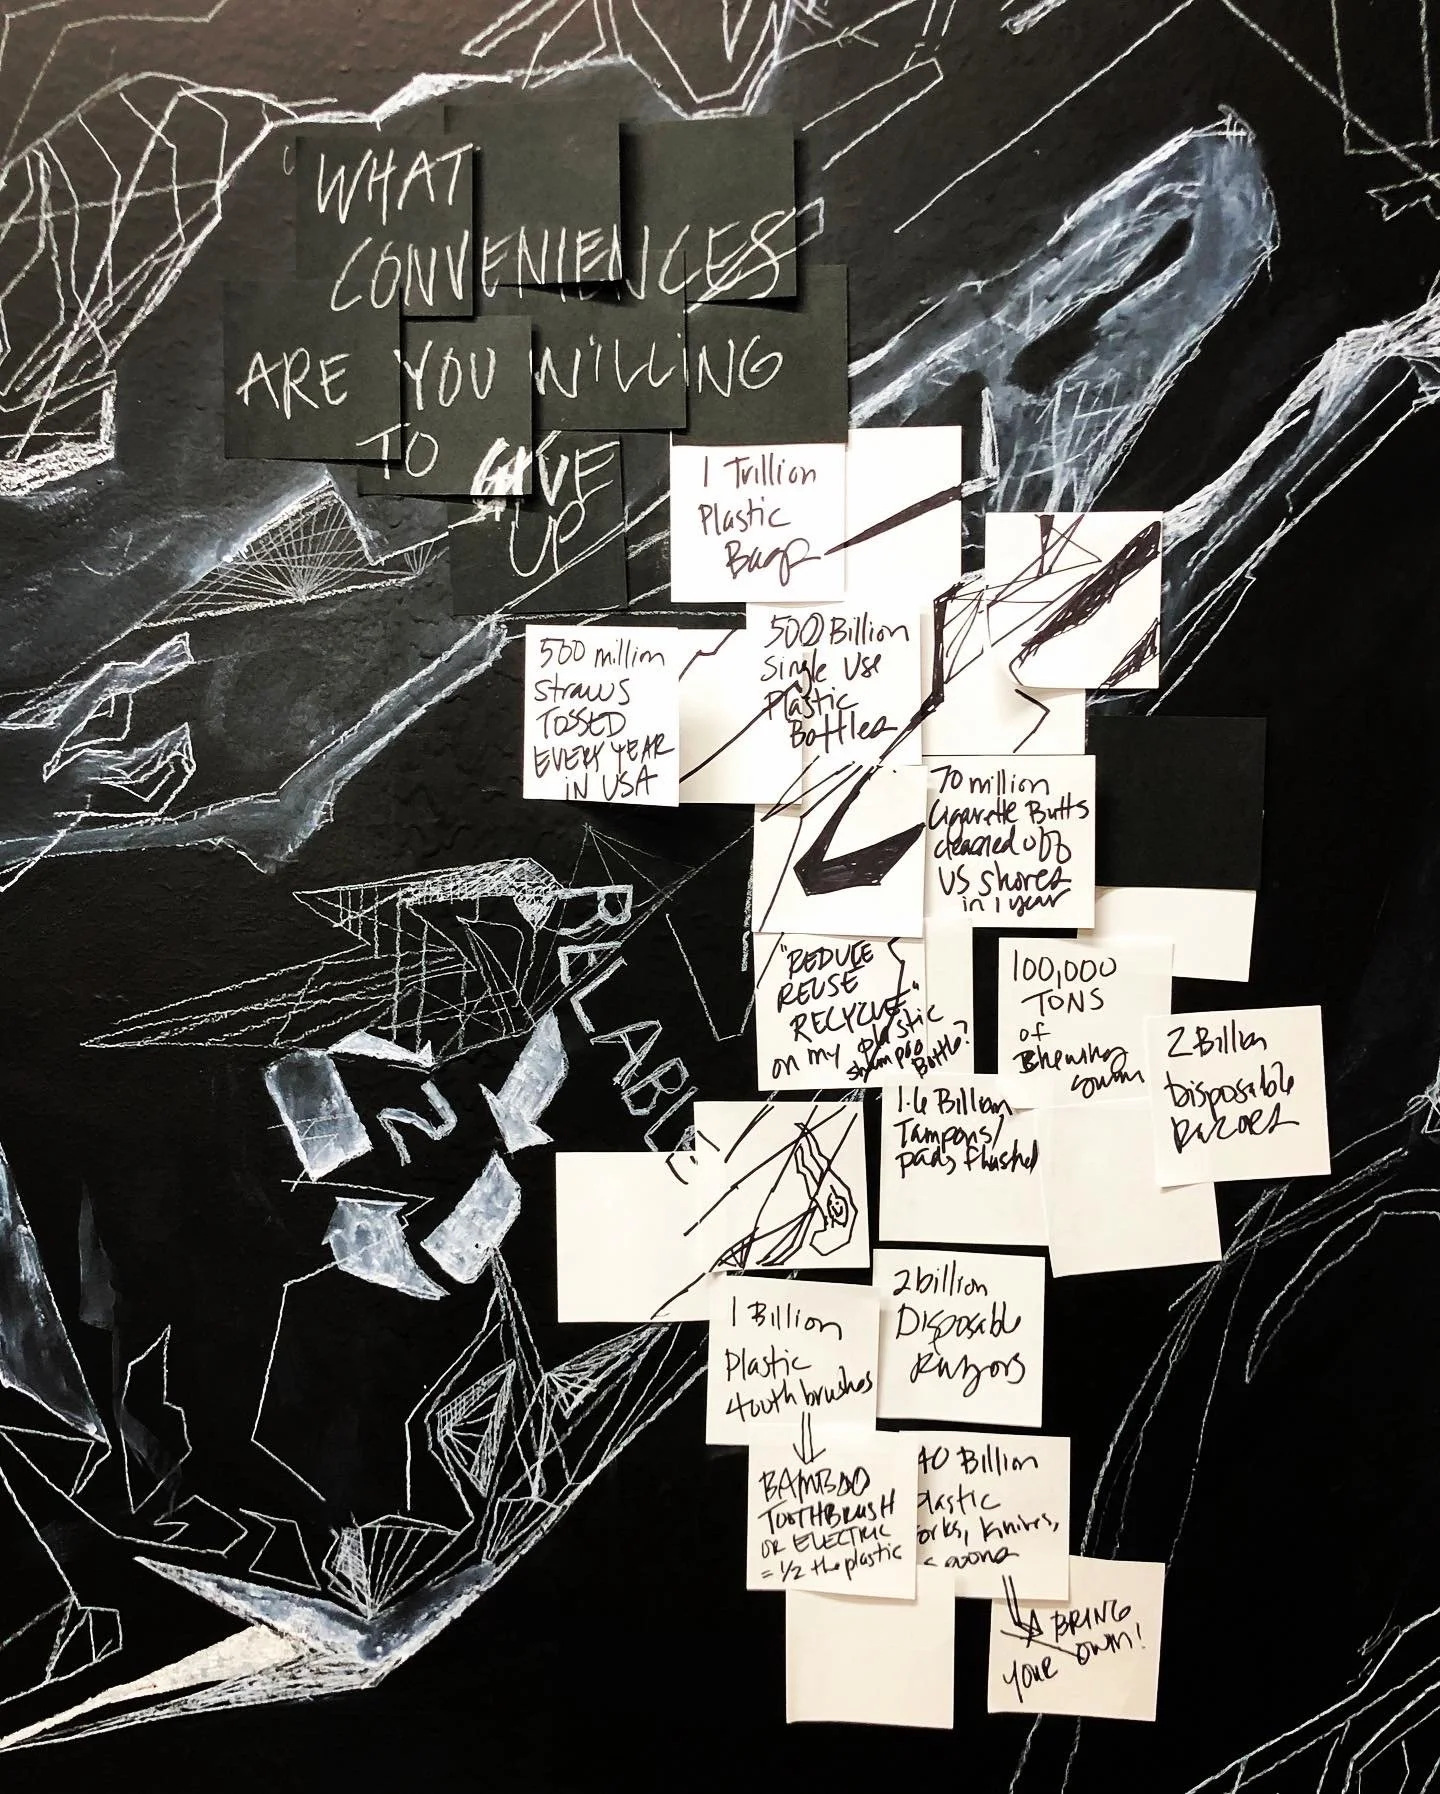 WHAT
CONVENIENCES
ARE YOU WILLING
TO GIVE
UP
1 Trillion
Plastic
Bags
500 million
straws
TOSSED
EVERY YEAR
IN USA
500 Billion
Single Use
Plastic
Bottles
70 million
Cigarette Butts
cleaned off
US shores
in 1 year
"REDUCE
REUSE
RECYCLE"
on my plastic
shampoo
Bottle?
100,000
TONS
of
Chewing
gum
2 Billion
Disposable
Razors
1.6 Billion
Tampons/
pads flushed
RELIABLE
2
1 Billion
Plastic
toothbrushes
2 billion
Disposable
Razors
BAMBOO
TOOTHBRUSH
OR ELECTRIC
= 1/2 the plastic
40 Billion
Plastic
forks, knives,
spoons
BRING
YOUR OWN!